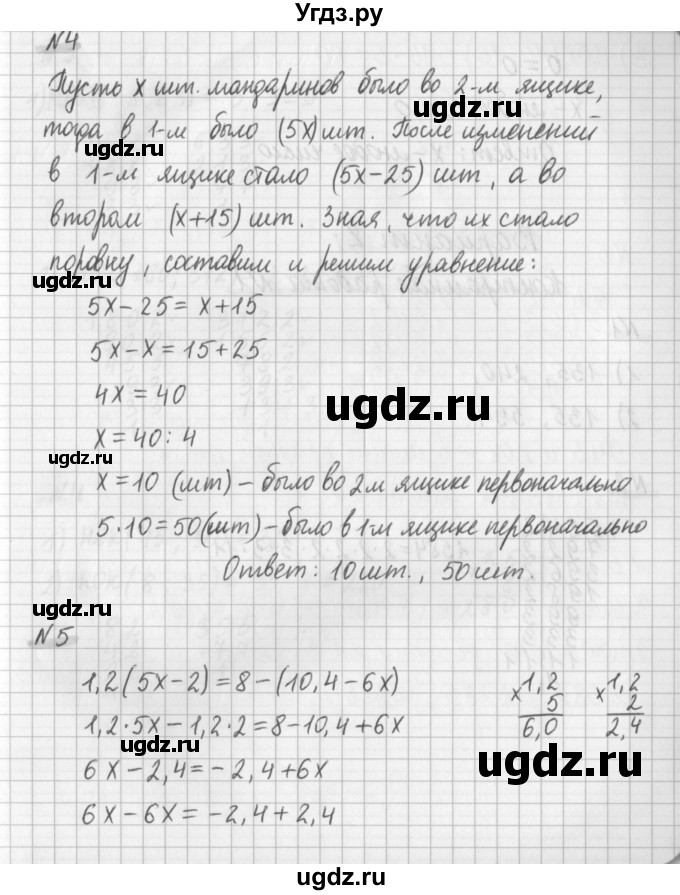 Угдз.ру
№4
Пусть х шт. мандаринов было во 2-м ящике,
тогда в 1-м было (5х) шт. После изменений
ugdz.ru
в 1-м ящике стало (5х-25) шт, а во
втором (х+15) шт. Зная, что их стало
поровну, составим и решим уравнение:
ugdz.ru
5х-25=х+15
5х-х=15+25
4х=40
ugdz.ru
х=40:4
ugdz.ru
х=10 (шт) - было во 2м ящике первоначально
5·10=50(шт) - было в 1-м ящике первоначально
Ответ: 10шт., 50шт.
ugdz.ru
№5
1,2(5х-2)=8-(10,4-6х)
1,2·5х-1,2·2=8-10,4+6х
ugdz.ru
6х-2,4=-2,4+6х
6х-6х=-2,4+2,4
х 1,2
5
6,0
х 1,2
2
2,4
ugdz.ru
ugdz.ru